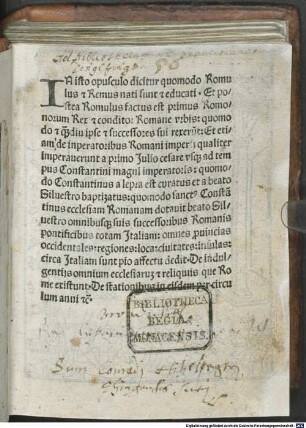 IN isto opusculo dicitur quomodo Romu
lus ⁊ Remus nati sunt ⁊ educati. Et po
stea Romulus factus est primus Romo
norum Rex ⁊ conditor: Romane vrbis: quomo
do ⁊ q̃diu ipse ⁊ successores sui rexerũt: Et eti
am de inperatoribus Romani imperij qualiter
imperauerunt a primo Julio cesare vsq; ad tem
pus Constantini magni imperatoris: ⁊ quomo
do Constantinus a lepra est curatus et a beato
Siluestro baptizatus: quomodo sanctꝰ Constã
tinus ecclesiam Romanam dotauit beato Sil
uestro omnibusq; suis successoribus Romanis
pontificibus totam Italiam: omnes ꝓuincias
occidentales: regiones: loca: ciuitates: insulas:
circa Italiam sunt pio affectu dedit. De indul
gentijs omnium ecclesiarũ ⁊ reliquiis que Ro
me existunt: De stationibus in eisdem per circu
lum anni ⁊c̃
BIBLIOTHECA
REGIA
MONACENSIS.
Sum